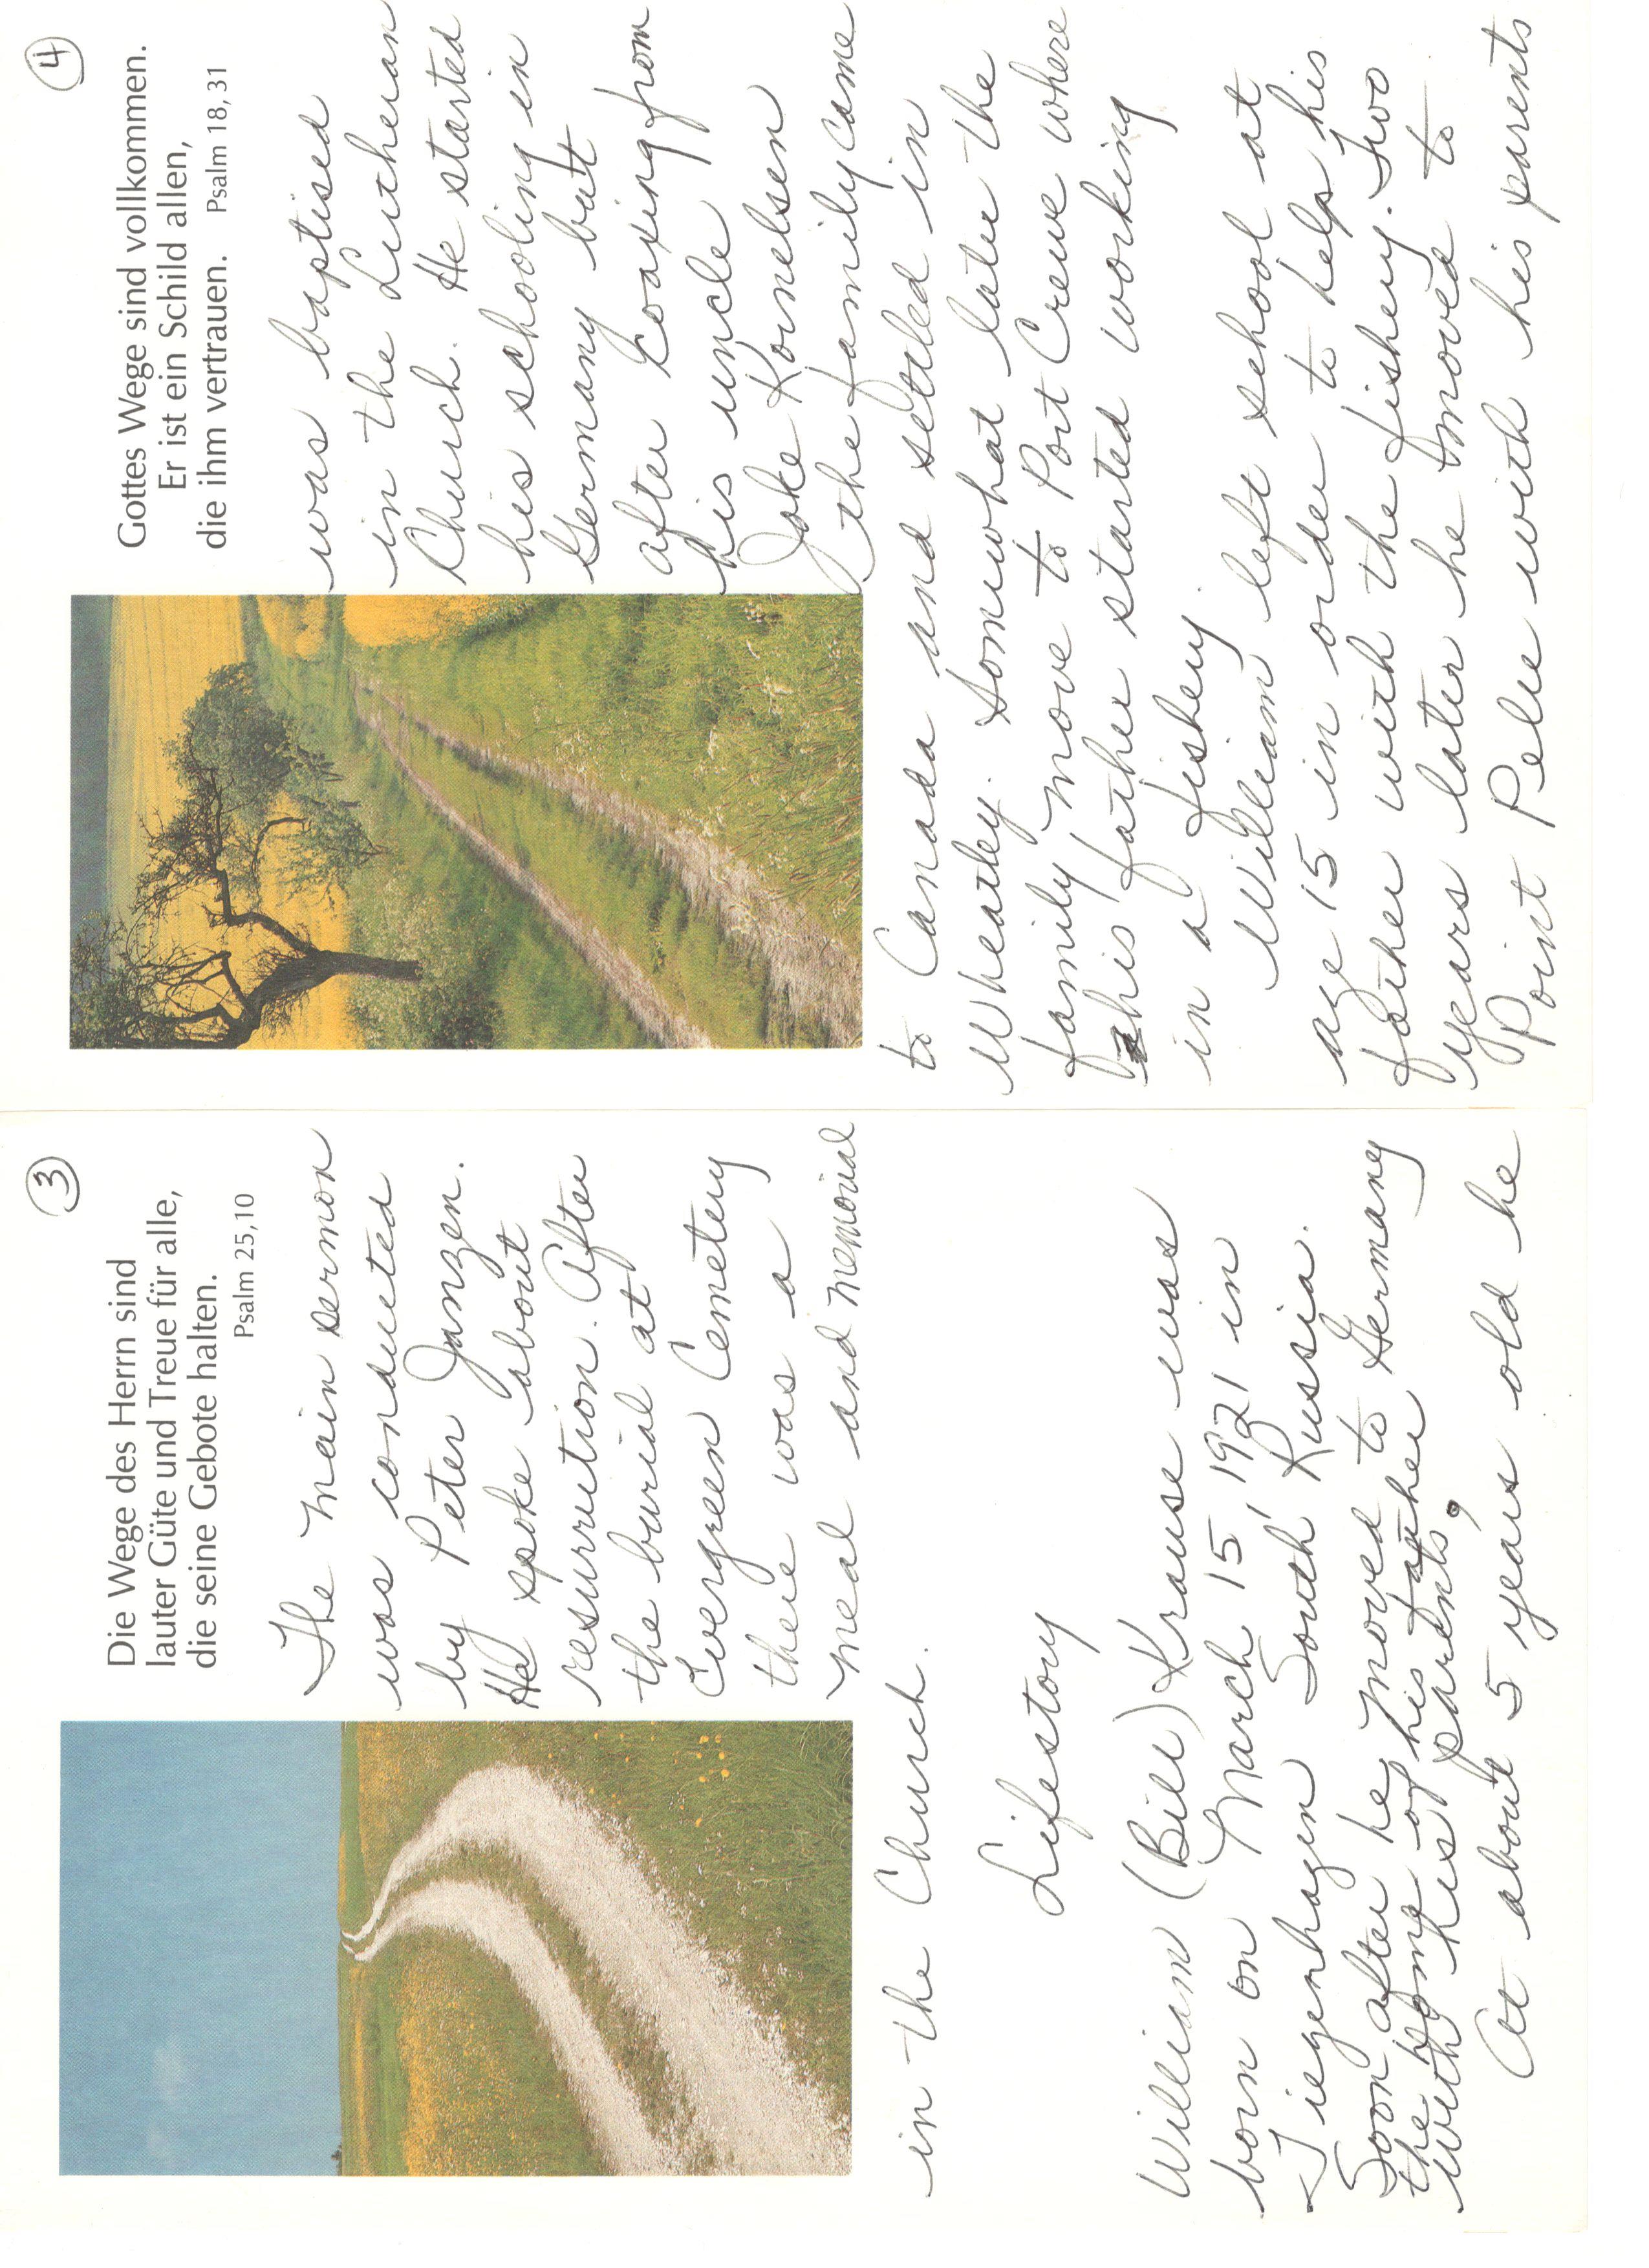 3
Die Wege des Herrn sind
lauter Güte und Treue für alle,
die seine Gebote halten.
Psalm 25,10
The main sermon
was conducted
by Peter Janzen.
He spoke about
resurrection. After
the burial at
Evergreen Cemetery
there was a
meal and memorial
in the Church.
Lifestory
William (Bill) Krause was
born on March 15, 1921 in
Tiegenhagen South Russia.
Soon after he moved to Germany
the home of his father
with his parents.
At about 5 years old he
4
Gottes Wege sind vollkommen.
Er ist ein Schild allen,
die ihm vertrauen. Psalm 18,31
was baptised
in the Lutheran
Church. He started
his schooling in
Germany but
after coaxing from
his uncle
Jake Kornelsen
the family came
to Canada and settled in
Wheatley. Somewhat later the
family move to Port Crewe where
his father started working
in a fishery.
William left school at
age 15 in order to help his
father with the fishery. Two
years later he moved to
Point Pelee with his parents